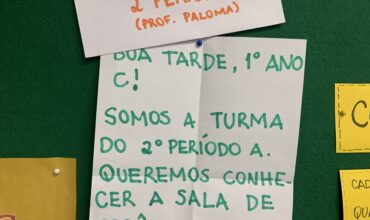 2º PERÍODO
(PROF. PALOMA)
BOA TARDE, 1º ANO
C!
SOMOS A TURMA
DO 2º PERÍODO A.
QUEREMOS CONHE-
CER A SALA DE
CAD